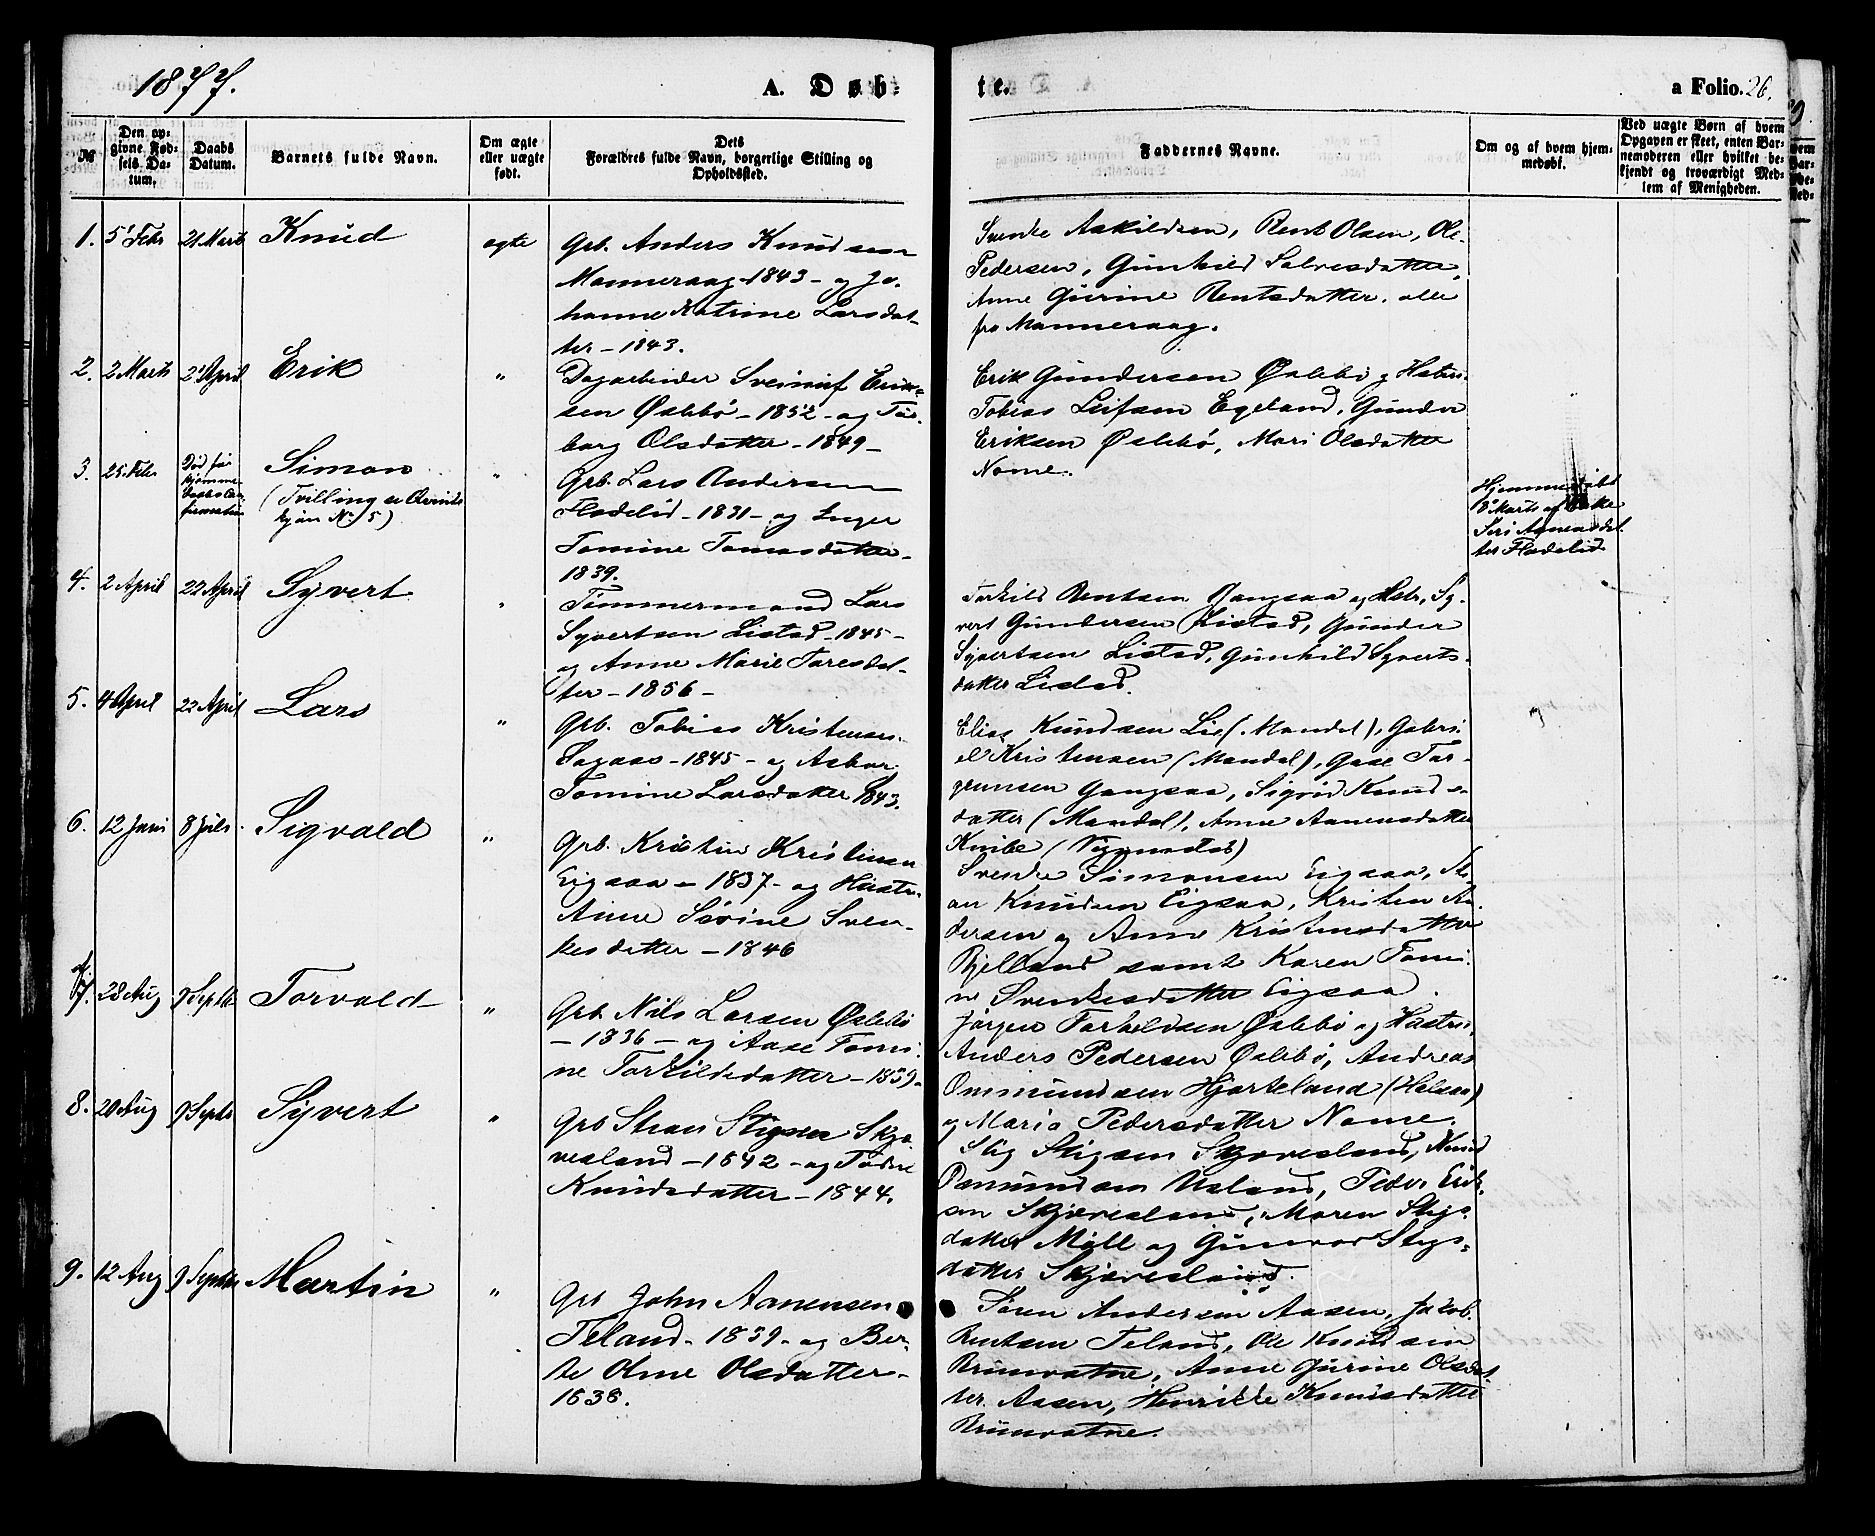 1877.
A. Døb-
te.
a Folio. 26.
№
Den op-
givne Fød-
sels Da-
tum.
Daabs
Datum.
Barnets fulde Navn.
Om ægte
eller uægte
født.
Dets
Forældres fulde Navn, borgerlige Stilling og
Opholdssted.
Faddernes Navne.
Om og af hvem hjem-
medøbt.
Ved uægte Børn af hvem
Opgaven er skeet, enten Bar-
nemoderen eller hvilket be-
kjendt og troværdigt Med-
lem af Menigheden.
1. 5 Febr 21 Marts Knud ægte
Grb. Anders Knudsen
Manneraag - 1843 - og Jo-
hanne Katrine Larsdat-
ter - 1843.
Svenke Askildsen, Bent Olsen, Ole
Pedersen, Gunhild Salvesdatter,
Anne Gurine Bentsdatter, alle
fra Manneraag.
2. 2 Marts 2 April Erik "
Dagarbeider Erik-
sen Øslebø - 1852 - og Tor-
borg Olsdatter - 1849 -
Erik Gundersen Øslebø og Hustru,
Tobias Leifsen Egeland, Gunder
Eriksen Øslebø, Mari Olsdatter
Nome.
3. 25 Febr
Død før
hjemme-
daabs Con-
firmation
Simon "
(Tvilling se Qvinde-
kjøn No 5)
Grb. Lars Andersen
Flodelid - 1831 - og Inger
Tomine Tomasdatter -
1839.
Hjemmedøbt
8 Marts af
Seri Aanensdat-
ter Flodelid
4. 2 April 22 April Syvert "
Tømmermand Lars
Syvertsen Listad - 1845 -
og Anne Marie Taresdat-
ter - 1856 -
Torkild Bentsen Gangsaa og Hstr, Sy-
vert Gundersen Listad, Gunder
Syvertsen Listad, Gunhild Syverts-
datter Listad.
5. 4 April 22 April Lars "
Grb. Tobias Kristensen
- 1845 - og Asbor
Tomine Larsdatter 1843.
Elias Knudsen Lie (Mandal), Gabri-
el Kristensen (Mandal), Gase Tor-
grimsen Gangsaa, Sigrid Knuds-
datter (Mandal), Anne Aanensdatter
Knibe
6. 12 Juni 8 Juli Sigvald "
Grb. Kristen Kristensen
Eigsaa - 1837 - og Hustru
Anne Sørine Sven-
kesdatter - 1846
Svenke Simonsen Eigsaa,
Knudsen Eigsaa, Kristen An-
dersen og Anne Kristensdatter
Bjelland samt Karen Tomi-
ne Svenkesdatter Eigsaa.
7. 28 Aug 9 Septbr Torvald "
Grb. Nils Larsen Øslebø
- 1836 - og Aase Tomi-
ne Torkildsdatter - 1839 -
Jørgen Torkildsen Øslebø og Hustru,
Anders Pedersen Øslebø, Andreas
Ommundsen Hjorteland (Halsaa)
og Maria Pedersdatter Nome.
8. 20 Aug 9 Septbr Syvert "
Grb Stian Stigsen Skjæ-
vesland - 1842 - og Todne
Knudsdatter - 1844.
Stig Stigsen Skjævesland,
Usland, Peder Erik-
sen Skjævesland, Maren Stigs-
datter Møll og Gunvor Stigs-
datter Skjævesland.
9. 12 Aug 9 Septbr Martin "
Grb John Aanensen
Teland - 1839 - og Ber-
te Olene Olsdatter -
1838.
Søren Andersen Aasen, Jakob
Bentsen Teland, Ole Knudsen
Brunvatne, Anne Gurine Olsdat-
ter Aasen, Henrikke Knudsdatter
Brunvatne.